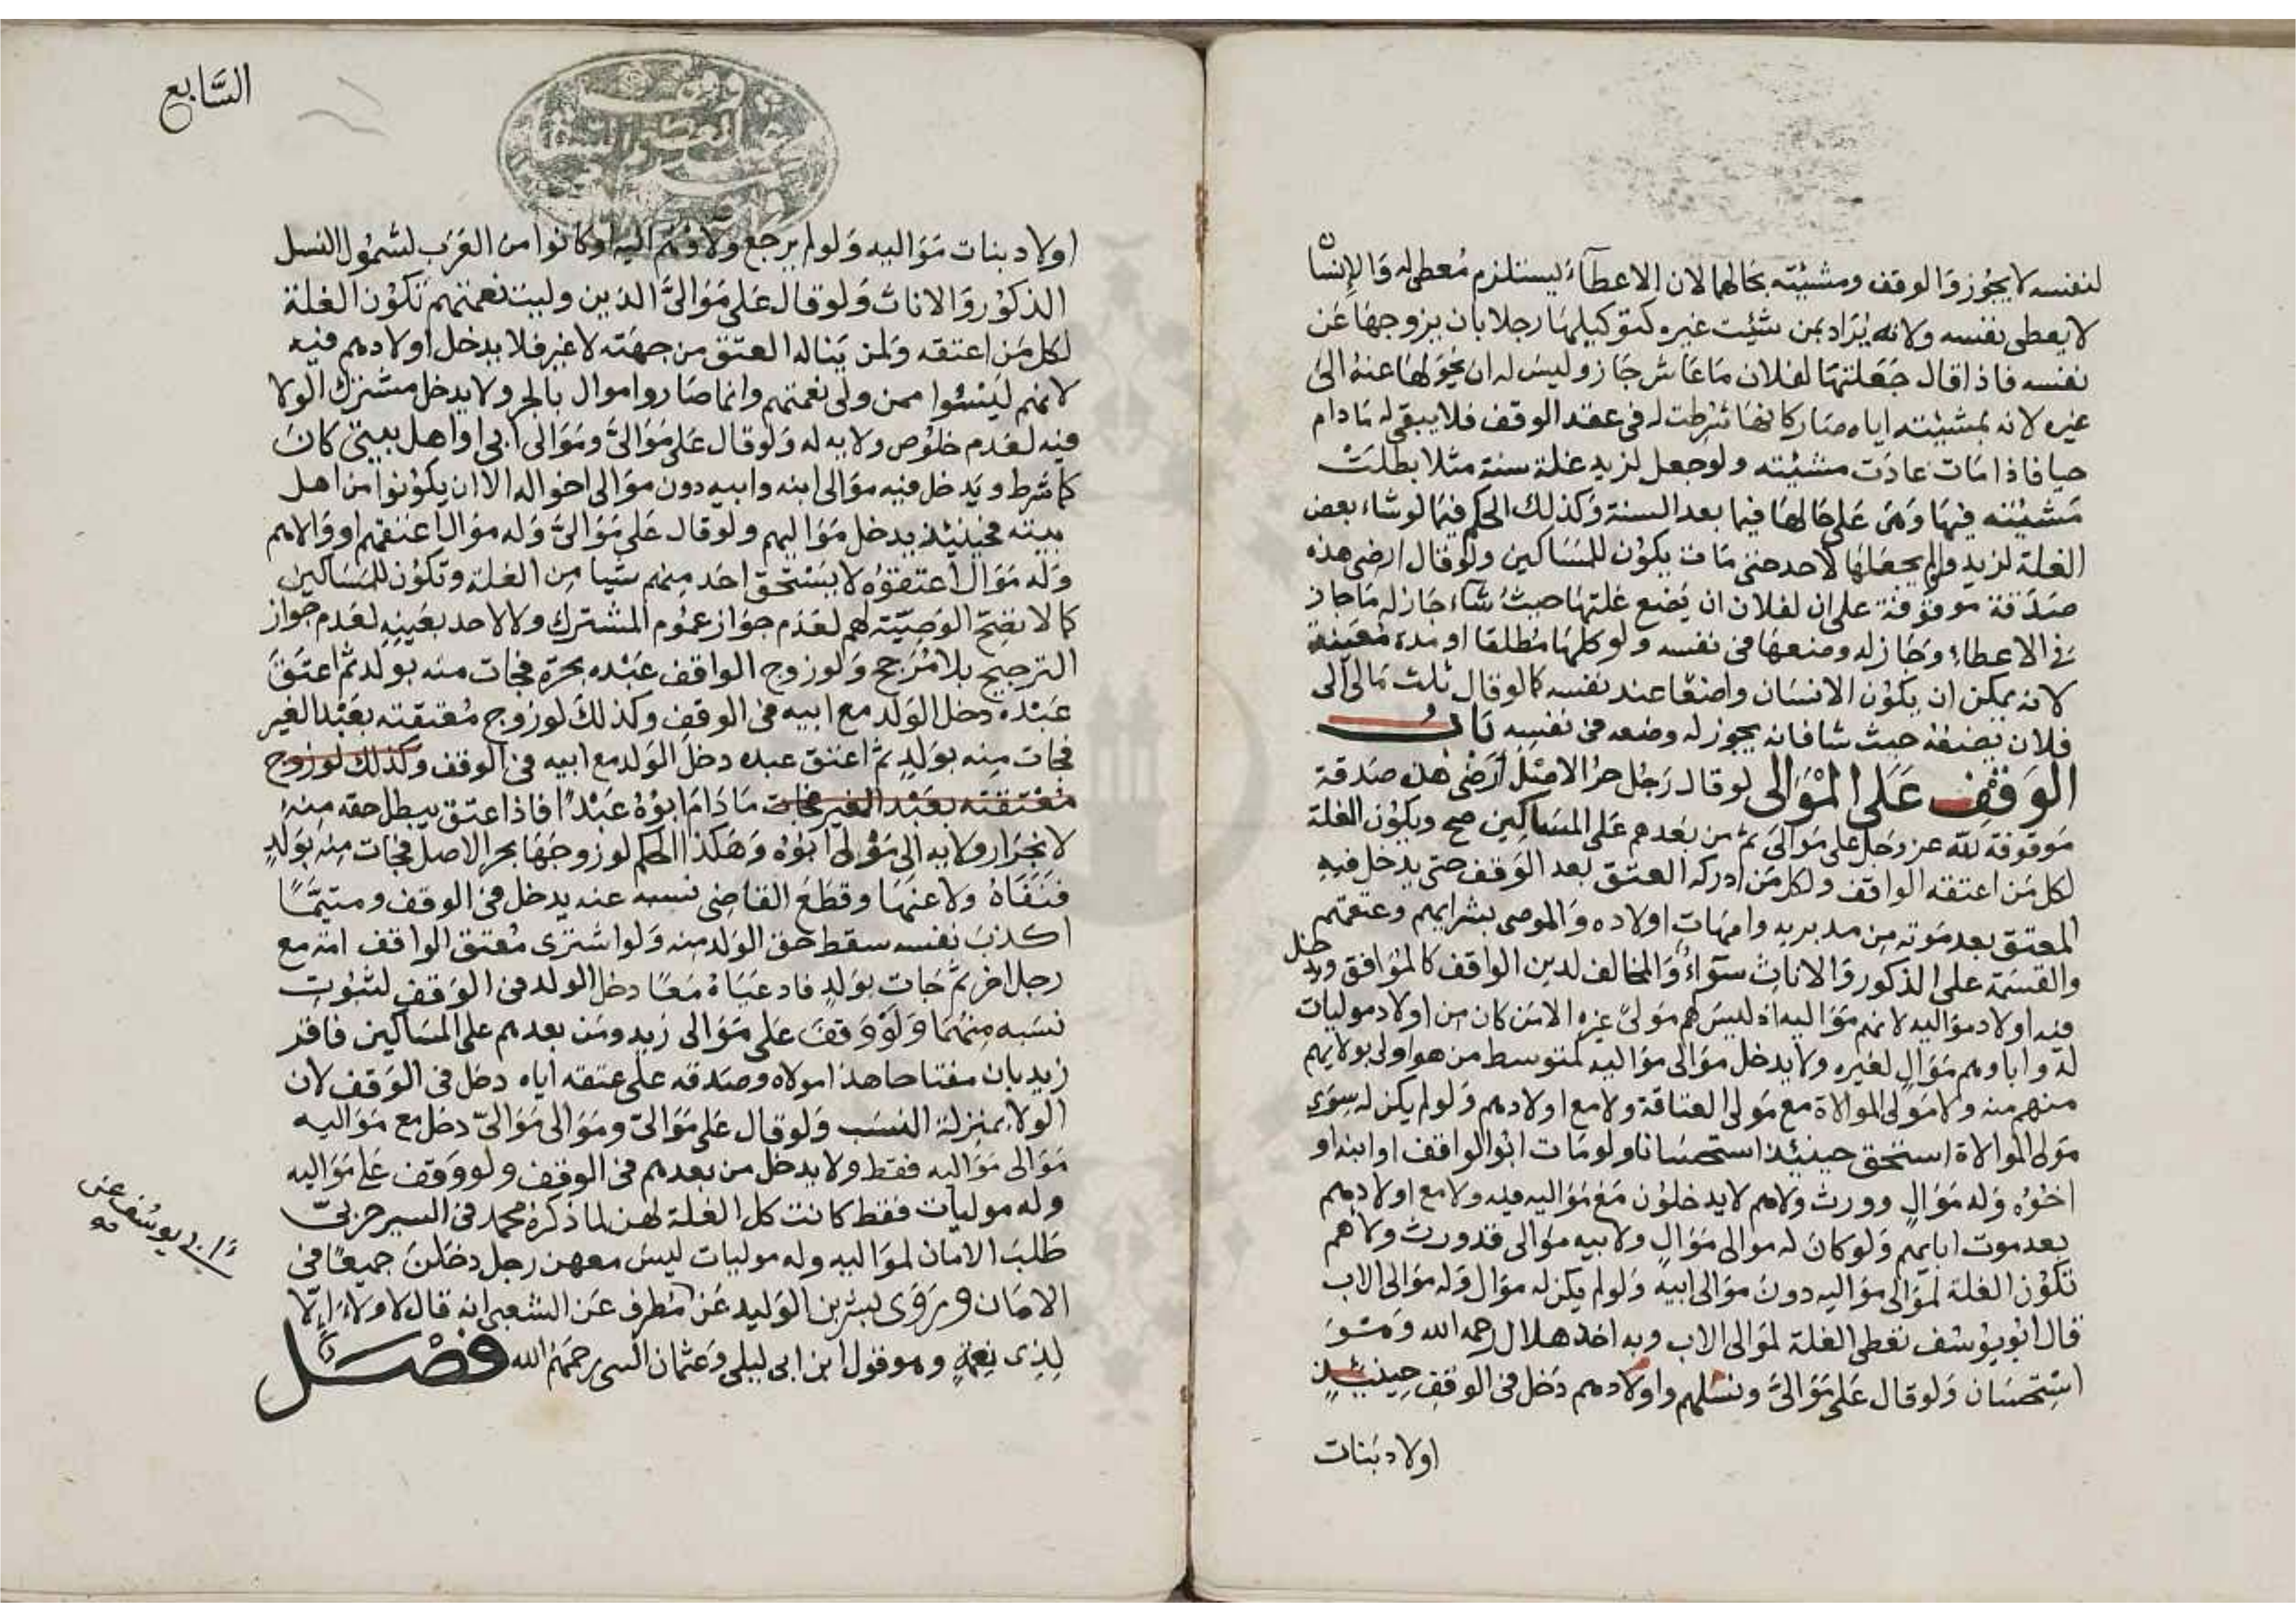 لنفسه لا يجوز والوقف ومشيئته بحالهما لان الاعطآء يستلزم مُعطى له والانسان
لا يعطى نفسه ولانه يُراد بمن شئيت غيره كتوكيلها رجلا بان يزوجها عَن
نفسه فاذا قال جَعَلتها لفلان مَا عَاش جَاز وليسَ له ان يحَولهَا عنهُ الىٰ
غيره لانه بمشيئته اياه صَار كانها شرطت له فى عقد الوقف فلا يبقى له مَا دام
حيا فاذا مَات عادَت مشئيته ولو جعل لزيد غلة سنة مثلا بطلَتْ
مَشيئته فيها وَهىَ على حَالها فيما بعد السنة وَكذلك الحكم فيما لو شاء بعض
الغلة لزيد ولو لم يجعَلها لاحد حتى مَات يكوُن للمسَاكين ولو قال ارضى هذه
صَدَقة موقوفة على ان لفلان ان يَضع غلتهَا حيثُ شآء جَاز له مَا جاز
فى الاعطاء وَجَاز له وضعهَا فى نفسه ولو كلهَا مُطلقا او مدة مُعَينة
لانه يمكن ان يكوُن الانسَان واضعًا عند نفسه كما لو قال ثلث مَالى الى
فلان يضَعُهُ حيث شا فانه يجوز له وضعه فى نفسِه بَابُ
الوَقفِ عَلَى المْوَالى لو قال رَجُل حرُ الاصْل أرْضى هذه صَدقة
مَوقوفة لله عز وَجَل على مَوالىَ ثم من بَعْدهم عَلى المسَاكِين صح ويكوُن الغلة
لكل مَن اعتقه الواقف ولكل مَن ادركه العتق بعد الوَقف حتى يدخل فيهِ
المعتق بعد مَوته مِن مدبريه وامهَات اولاده وَالموصى بشرايهم وعتقهم
والقسمَة على الذكور وَالاناثِ سَوآءٌ وَالمخالف لدين الواقف كالمُوَافق ويدخل
فيه اولاد موَاليه لانهم مَوَاليه اذ ليسَ لهم مَولىً غيره الا مَن كان مِن اولاد موليات
له واباوهم مَوَالٍ لغيره ولا يدخل موَالى موَاليه لمتوسط من هو اولى بولايهم
منهم منه ولا مَولى الموالاة مع مَولى العتاقة ولا مع اولادهم وَلو لم يكن له سِوَى
مَولى الموالاة استحق حينئذ استحسَانا ولو مَات ابُو الواقف او ابنه او
اخوُه وَله مَوَالٍ وورث ولاهم لا يدخلوُن مَعَ مَوَاليه فيه ولا مع اولادهم
بعد موت ابايهم وَلو كان له موالى مَوَالٍ ولابيه موَالى قد ورث ولاهم
تكوُن الغلة لموَالى موَاليه دونَ موَالى ابيهِ وَلو لم يكن له موَال وَله موَالى الاب
قال ابُو يوُسُف تعْطى الغلة لموَالى الاب وبه اخذ هلال رحمه الله وَهُوَ
اسْتحْسَان وَلو قال عَلى مَوَالىَّ ونسْلهم واولادهم دَخَل فى الوقفِ حِينئذٍ
اولاد بَنات
السَّابع
وقف
اولاد بنات مَوَاليه وَلو لم يرجع ولاوهُم اليه او كانوا منَ العَرَب لشموُل النسل
الذكوُر وَالاناث وَلو قال عَلى مَوَالىَّ الذين وليت نعمتهم تكوُن الغلة
لكل مَن اعتقه وَلمن يَناله العتق من جهَته لا غير فلا يدخل اولادهم فيه
لانهم ليْسُوا ممن ولى نعمتهم وانما صَاروا موال بالجر ولا يدخل مشترك الولا
فيه لعَدم خلوُص ولايه له وَلو قال عَلى مَوَالىَّ ومَوَالى ابى او اهل بيتى كانَ
كما شرط ويَدخل فيه مَوَالى ابنه وابيه دون مَوَالى اخواله الا ان يكوُنوا من اهل
بيته فحينئذ يدخل مَوَاليهم ولو قال عَلى مَوَالىَّ وَله موَال اعتقهم او والاهم
وَله مَوَال اعتقوُه لا يَسْتحق احَد منهم شيا مِن الغلة وتكوُن للمسَاكين
كما لا تصحّ الوَصِيّته لهم لعَدَم جوَاز عموُم المشترك ولا لاحد بعَينِهِ لعَدم جواز
الترجيح بلا مُرَجح وَلو زوج الواقف عَبْده بحرّة فجات منه بولد ثم اعتقَ
عَبْده دخل الوَلد مع ابيه فى الوقف وكذلكَ لو زوج مُعتقته بعَبْد الغير
فجات مِنه بوَلدٍ ثم اعتق عبده دخلَ الوَلد مع ابيه فى الوقف وكذلك لو زوج
مُعتقته بعَبْد الغير فجات مَا دَامَ ابُوْهُ عَبْدًا فاذا عتق يبطل حقه منهُ
لانجرَار ولايه الى مَوْلى ابُوْه وَهَكذا الحكم لو زوجَهَا بحر الاصل فجات مِنه بوَلدٍ
فنفَاهُ ولاعنهَا وقطعَ القاضِى نسبه عنه يدخل فى الوقف ومتيَمَّا
اكذبَ نفسه سقط حَق الوَلد منه وَلو اشترى مُعتق الواقف امَة مع
رجل اخر ثم جَات بوَلدٍ فادعيَاهُ مَعًا دخل الولد فى الوَقفِ لثبُوت
نسَبه مِنهُمَا وَلَوْ وَقفَ عَلى مَوَالى زيد ومَن بعدهم على المسَاكين فاقر
زيد بان مفتاحا هذا مولاه وصَدقه على عتقه اياه دخَل فى الوَقف لان
الولا بمنزلة النسَب وَلو قال عَلى مَوَالىّ ومَوَالى مَوَالىّ دخل مع مَوَاليه
مَوَالى مَوَاليه فقط ولا يدخل من بعدهم فى الوقف ولو وَقف عَلى مَوَاليه
وله موليات فقط كانت كل الغلة لهن لما ذكرهُ محمد فى السير حَربىّ
طَلبَ الامان لموَاليه وله موليات ليسَ معهن رجل دخلنَ جميعًا فى
الامَان وَرَوَى بشر بن الوَليد عَنْ مُطرف عَن الشعبى انه قال لا ولآءَ إلّا
لِذِى نِعْمَةٍ وهو قول ابن ابى ليلى وَعثمان البتى رحمَهُمُ الله فصْل